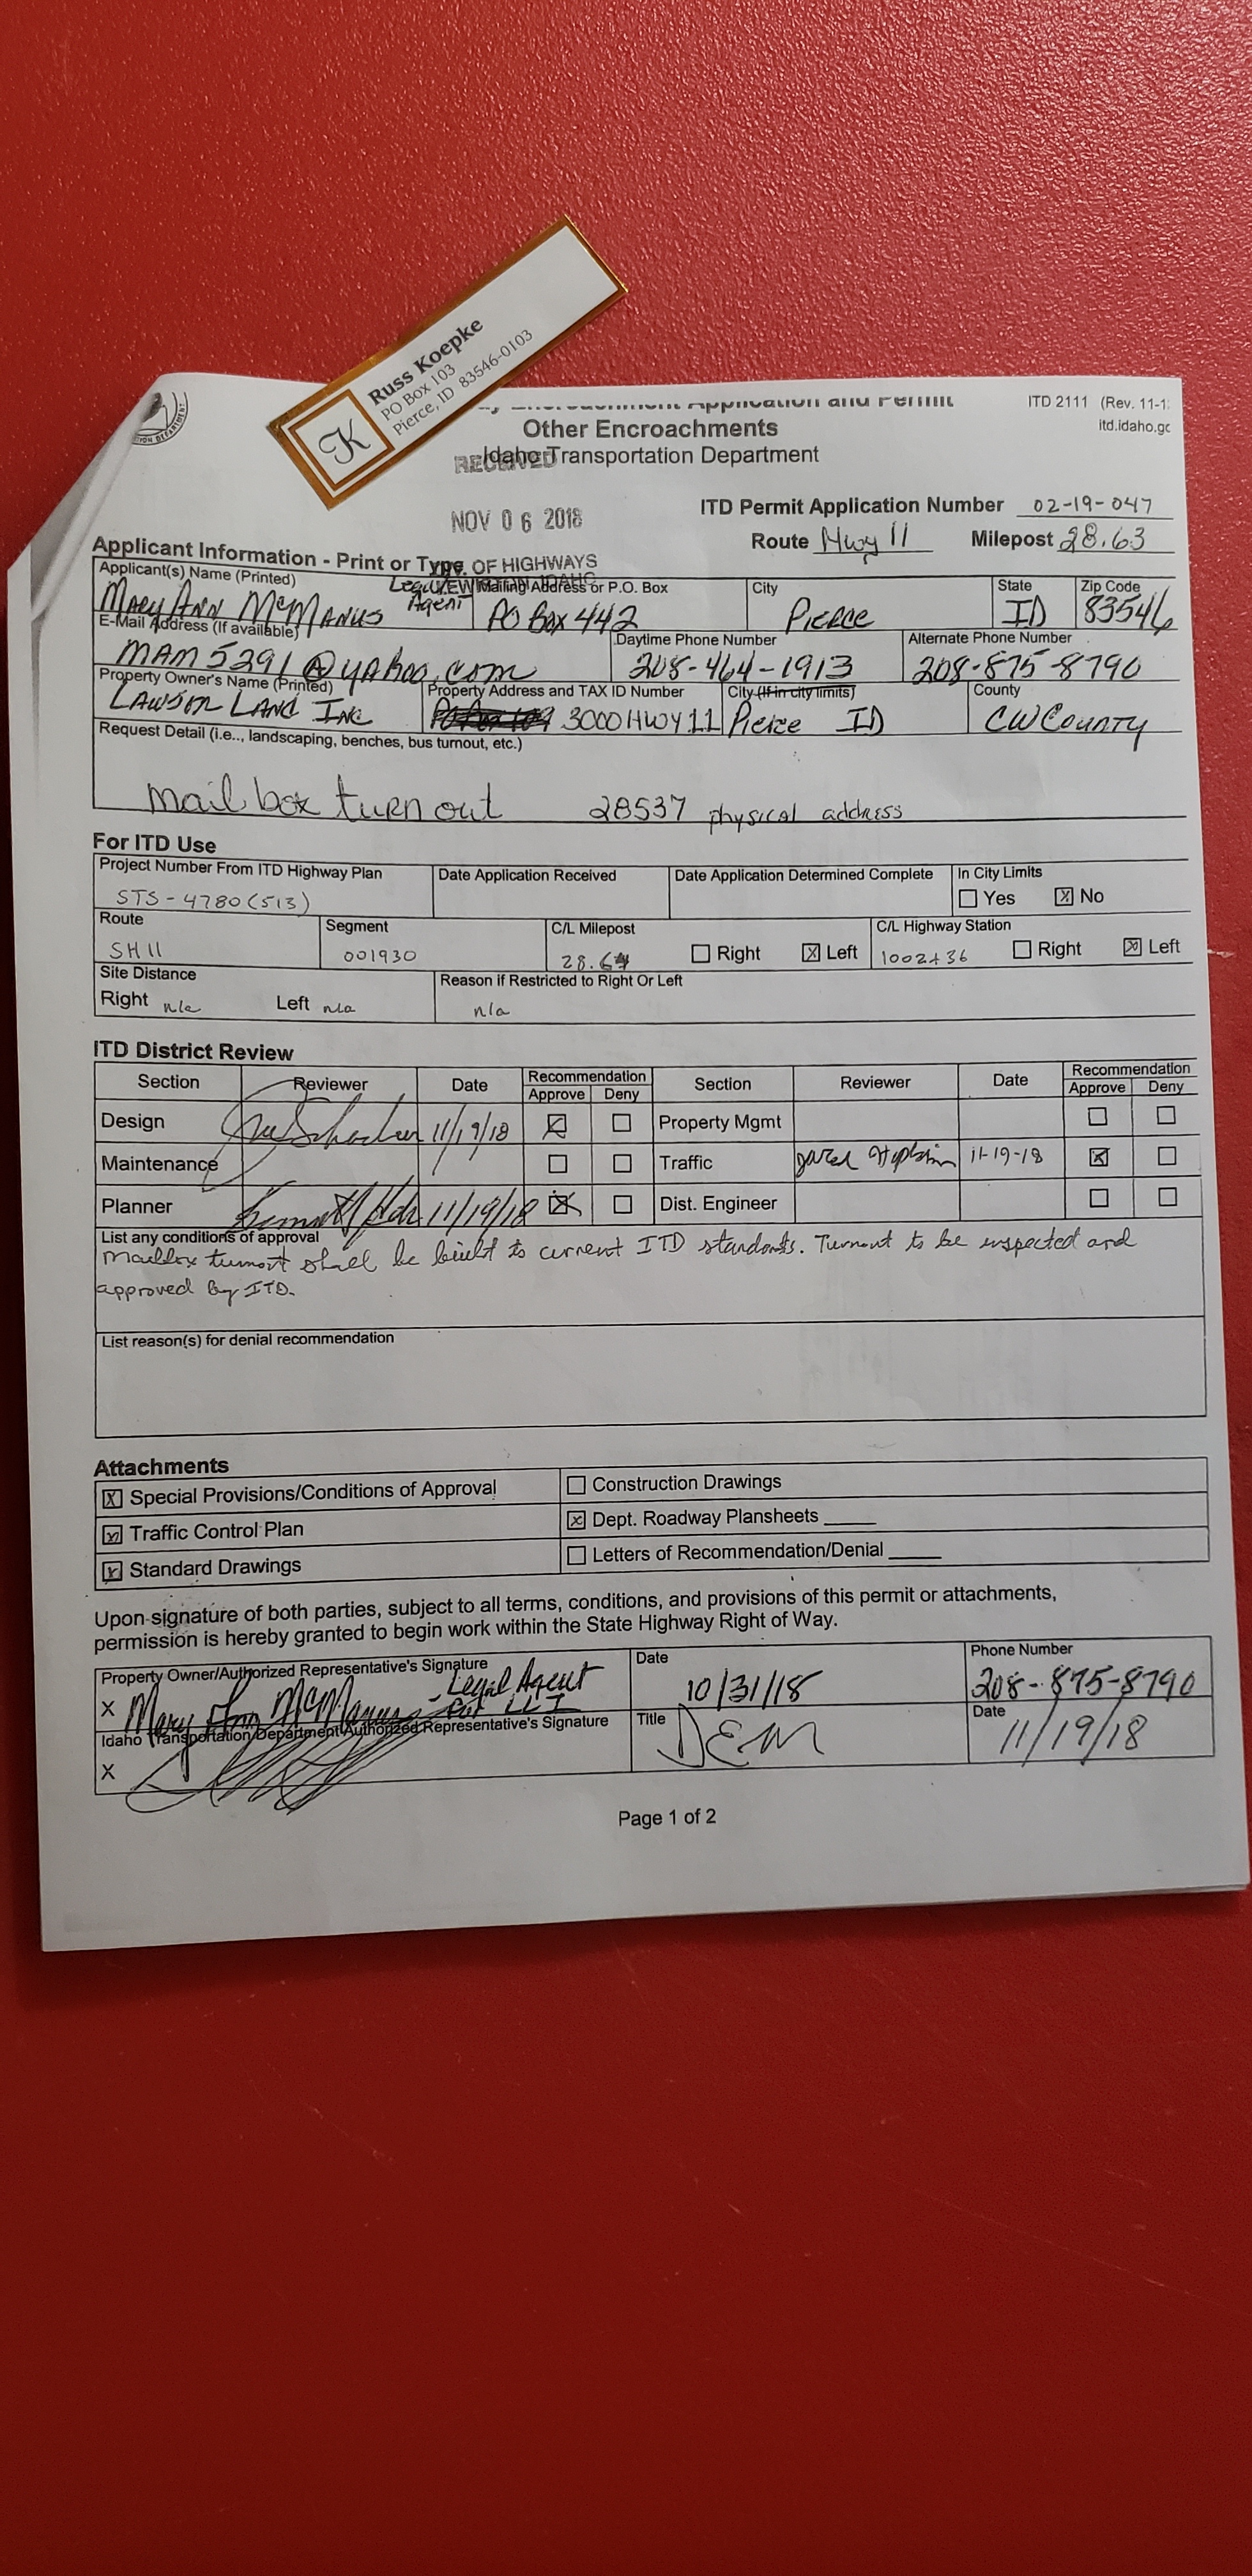 Russ Koepke
PO Box 103
Pierce, ID 83546-0103
K
Encroachment Application and Permit
ITD 2111 (Rev. 11-1
itd.idaho.go
Other Encroachments
Idaho Transportation Department
RECEIVED
NOV 06 2018
DIV. OF HIGHWAYS
LEWISTON, IDAHO
ITD Permit Application Number 02-19-047
Route Hwy 11 Milepost 28.63
Applicant Information - Print or Type
Applicant(s) Name (Printed) Mailing Address or P.O. Box City State Zip Code
Mary Ann McManus Legal Agent PO Box 442 Pierce ID 83546
E-Mail Address (If available) Daytime Phone Number Alternate Phone Number
MAM5291@yahoo.com 208-464-1913 208-875-8790
Property Owner's Name (Printed) Property Address and TAX ID Number City (If in city limits) County
Lawson Land Inc 3000 HWY 11 Pierce ID CW County
Request Detail (i.e.., landscaping, benches, bus turnout, etc.)
mail box turn out 28537 physical address
For ITD Use
Project Number From ITD Highway Plan Date Application Received Date Application Determined Complete In City Limits
STS-4780(513) Yes No
Route Segment C/L Milepost C/L Highway Station
SH 11 001930 28.64 Right Left 1002+36 Right Left
Site Distance Reason if Restricted to Right Or Left
Right n/a Left n/a n/a
ITD District Review
Section Reviewer Date Recommendation Section Reviewer Date Recommendation
Approve Deny Approve Deny
Design 11/19/18 Property Mgmt
Maintenance Traffic Jared Hopkins 11-19-18
Planner 11/19/18 Dist. Engineer
List any conditions of approval
Mailbox turnout shall be built to current ITD standards. Turnout to be inspected and
approved by ITD.
List reason(s) for denial recommendation
Attachments
Special Provisions/Conditions of Approval Construction Drawings
Traffic Control Plan Dept. Roadway Plansheets
Standard Drawings Letters of Recommendation/Denial
Upon signature of both parties, subject to all terms, conditions, and provisions of this permit or attachments,
permission is hereby granted to begin work within the State Highway Right of Way.
Property Owner/Authorized Representative's Signature Date Phone Number
X Mary Ann McManus - Legal Agent For LLI 10/31/18 208-875-8790
Idaho Transportation Department Authorized Representative's Signature Title Date
X DEM 11/19/18
Page 1 of 2